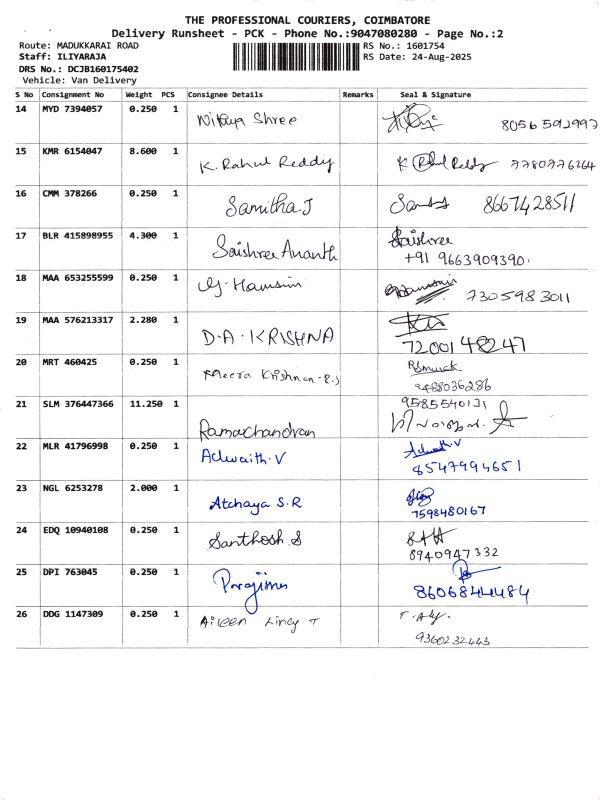 THE PROFESSIONAL COURIERS, COIMBATORE
Delivery Runsheet - PCK - Phone No.:9047080280 - Page No.:2
Route: MADUKKARAI ROAD
RS No.: 1601754
Staff: ILIYARAJA
RS Date: 24-Aug-2025
DRS No.: DCJB160175402
Vehicle: Van Delivery
S No Consignment No Weight PCS Consignee Details Remarks Seal & Signature
14 MYD 7394057 0.250 1 Nithya Shree 8056592997
15 KMR 6154047 8.600 1 K. Rahul Reddy K Rahul Reddy 7780776264
16 CMM 378266 0.250 1 Samitha.J 8667428511
17 BLR 415898955 4.300 1 Saishree Ananth Saishree
+91 9663909390.
18 MAA 653255599 0.250 1 7305983011
19 MAA 576213317 2.280 1 D.A.KRISHNA
7200148247
20 MRT 460425 0.250 1 Meera Krishnan
9488036286
21 SLM 376447366 11.250 1 Ramachandran 9585540131
22 MLR 41796998 0.250 1 Adwaith.V Adwaith.V
8547994651
23 NGL 6253278 2.000 1 Atchaya S.R
7598480167
24 EDQ 10940108 0.250 1 Santhosh S
8940947332
25 DPI 763045 0.250 1
8606844484
26 DDG 1147309 0.250 1 Aileen Lincy T
9360232443